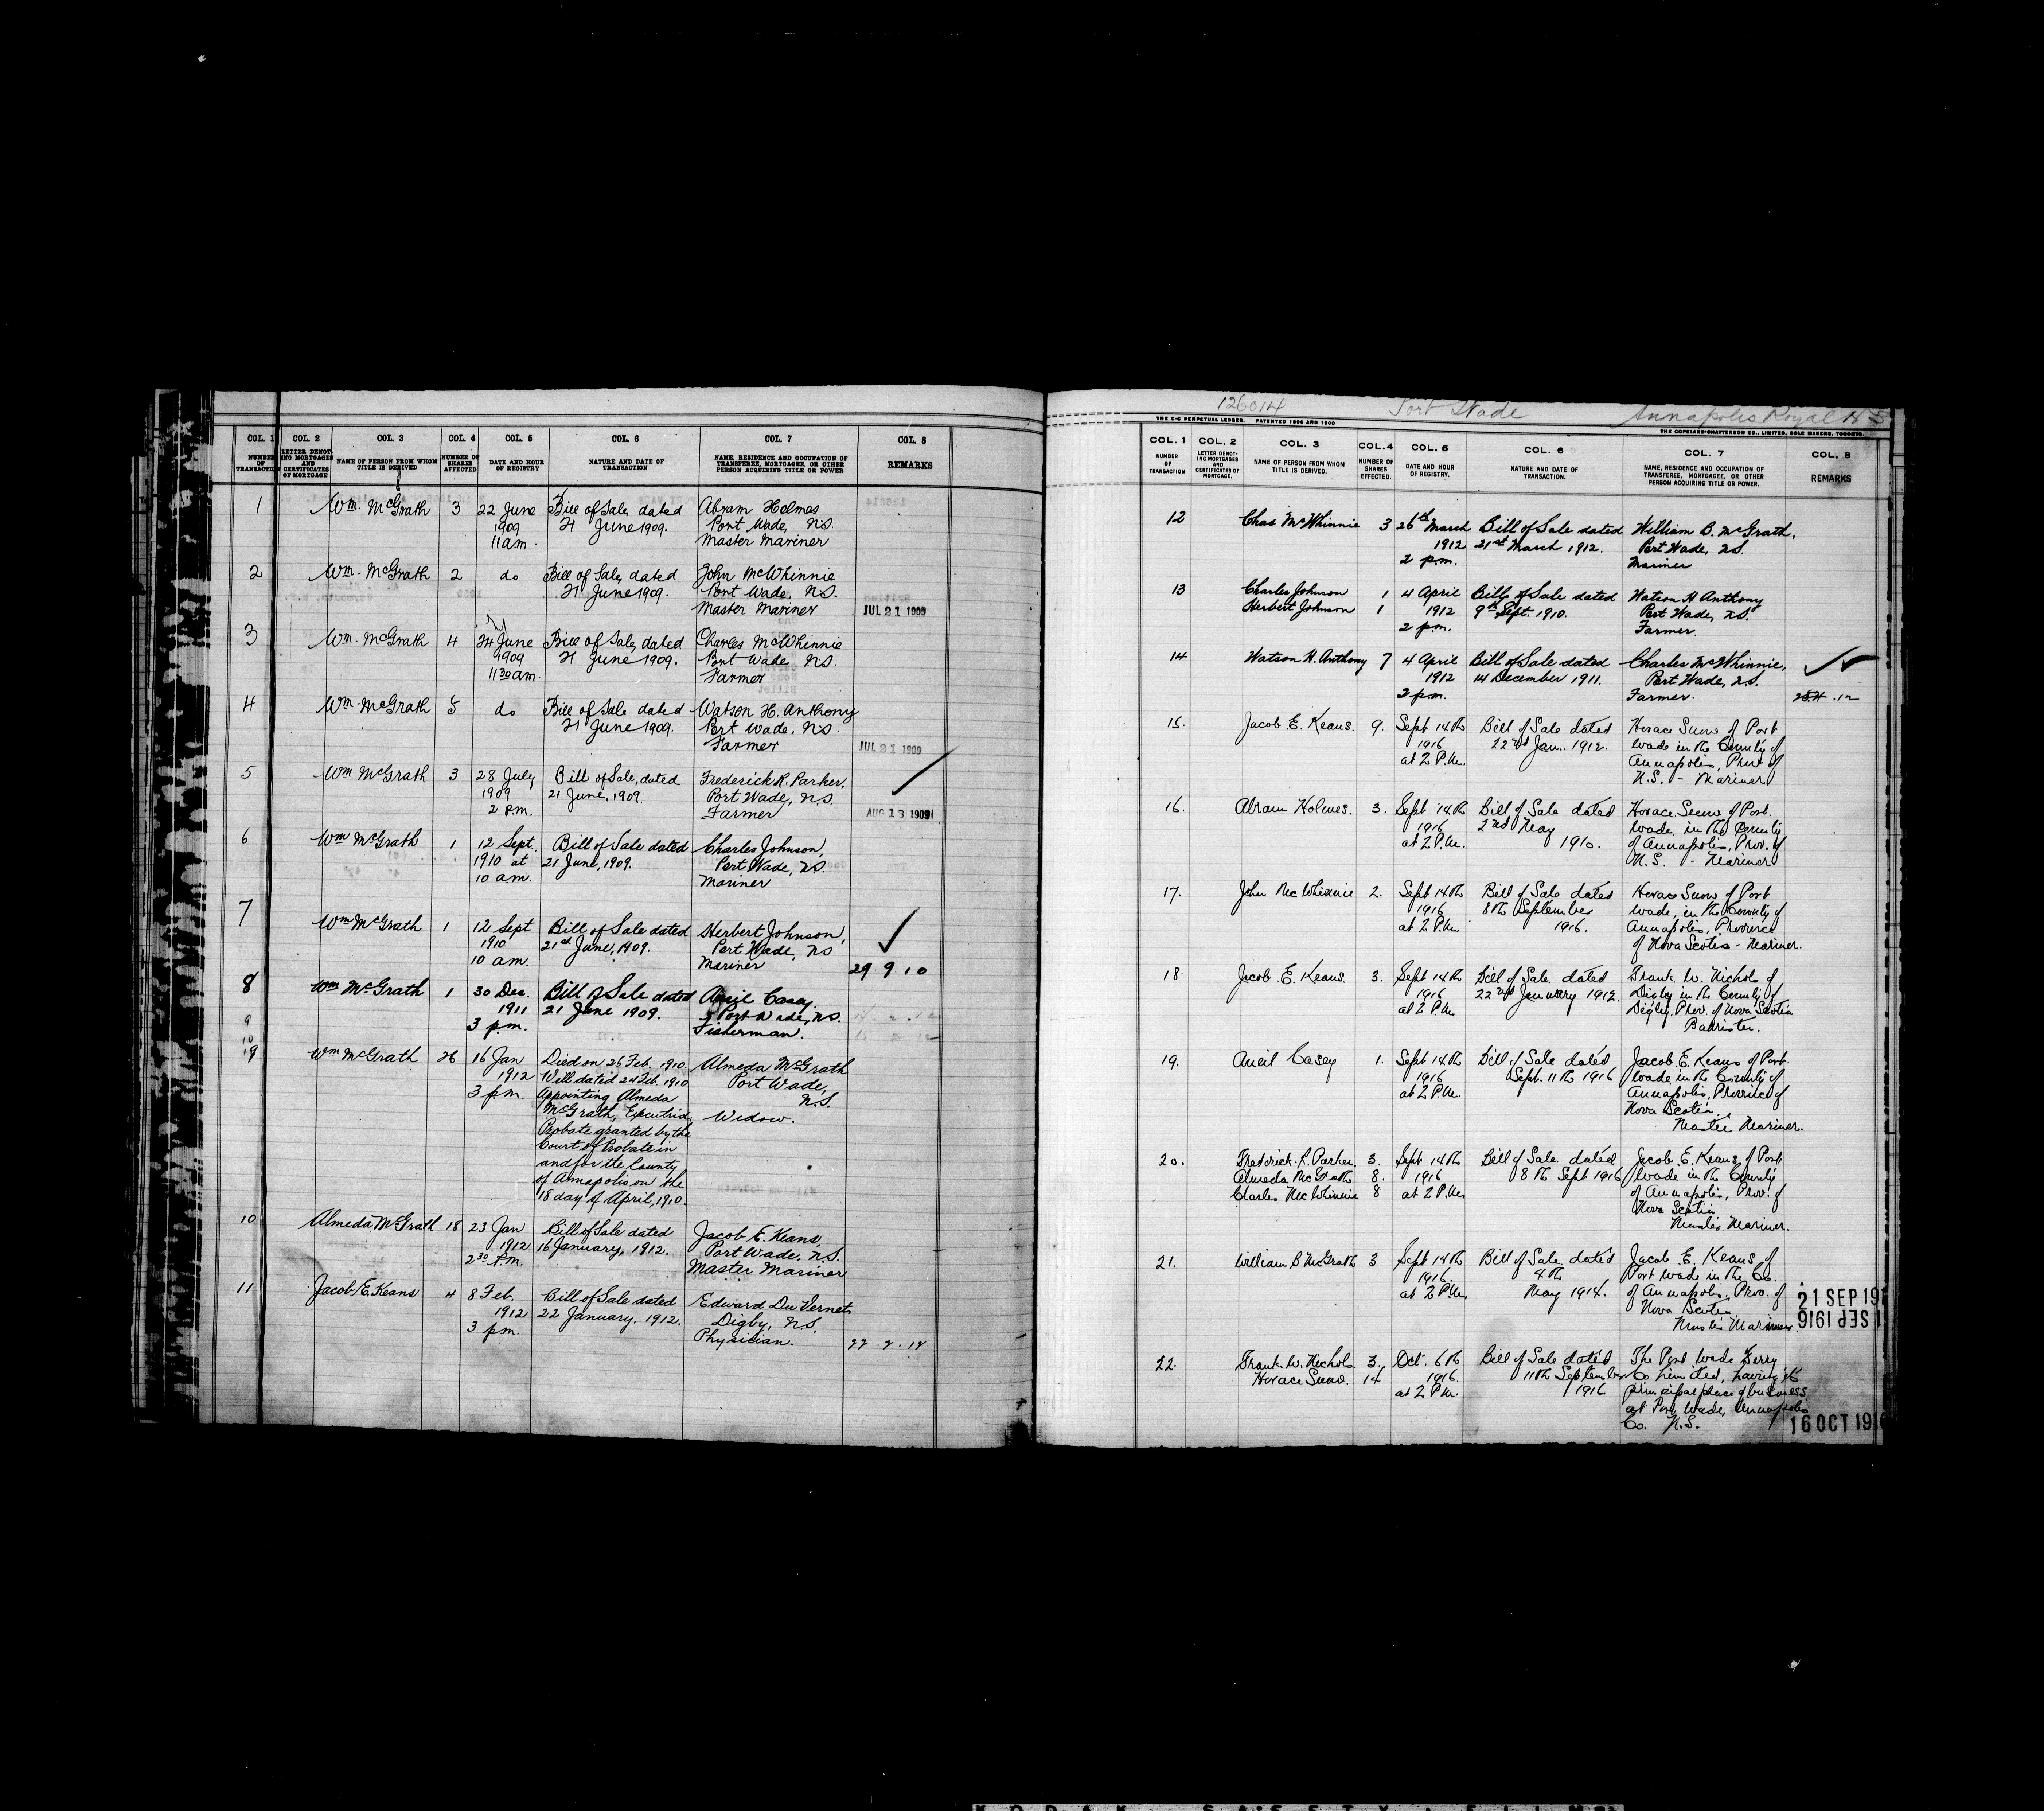 COL. 1 COL. 2 COL. 3 COL. 4 COL. 5 COL. 6 COL. 7 COL. 8
NUMBER OF TRANSACTION
LETTER DENOTING MORTGAGES AND CERTIFICATES OF MORTGAGE
NAME OF PERSON FROM WHOM TITLE IS DERIVED
NUMBER OF SHARES AFFECTED
DATE AND HOUR OF REGISTRY
NATURE AND DATE OF TRANSACTION
NAME, RESIDENCE AND OCCUPATION OF TRANSFEREE, MORTGAGEE, OR OTHER PERSON ACQUIRING TITLE OR POWER
REMARKS
1 Wm. McGrath 3 22 June Bill of Sale, dated Abram Holmes
1909 21 June 1909. Port Wade, N.S.
11 am. Master Mariner
2 Wm. McGrath 2 do Bill of Sale, dated John McWhinnie
21 June 1909. Port Wade, N.S.
Master Mariner JUL 21 1909
3 Wm. McGrath 4 24 June Bill of Sale, dated Charles McWhinnie
1909 21 June 1909. Port Wade, N.S.
11 30 am Farmer
4 Wm. McGrath 5 do Bill of Sale dated Watson H. Anthony
21 June 1909. Port Wade, N.S.
Farmer JUL 21 1909
5 Wm McGrath 3 28 July Bill of Sale, dated Frederick R. Parker,
1909 21 June, 1909. Port Wade, N.S.
2 P.m. Farmer AUG 13 1909
6 Wm McGrath 1 12 Sept. Bill of Sale dated Charles Johnson,
1910 at 21 June, 1909. Port Wade, N.S.
10 a.m. Mariner
7 Wm McGrath 1 12 Sept Bill of Sale dated Herbert Johnson,
1910 21st June, 1909. Port Wade, NS
10 am. Mariner 29 9 10
8 Wm McGrath 1 30 Dec. Bill of Sale dated Casey
1911 21 June 1909. of Port Wade, N.S.
3 p.m. Fisherman.
9
10
9 Wm McGrath 26 16 Jan Died on 26 Feb. 1910. Almeda McGrath
1912 Will dated 24 Feb. 1910 Port Wade,
3 p.m. Appointing Almeda N.S.
McGrath, Executrix, Widow.
Probate granted by the
Court of Probate in
and for the County
of Annapolis on the
18 day of April, 1910.
10 Almeda McGrath 18 23 Jan Bill of Sale dated Jacob E. Keans,
1912 16 January, 1912. Port Wade, N.S.
2 30 P.m. Master Mariner
11 Jacob E. Keans 4 8 Feb. Bill of Sale dated Edward Du Vernet,
1912 22 January, 1912. Digby, N.S.
3 pm. Physician.
126014 Port Wade Annapolis Royal N S
THE C-C PERPETUAL LEDGER. PATENTED 1896 AND 1900
THE COPELAND-CHATTERSON CO., LIMITED, SOLE MAKERS, TORONTO.
COL. 1 COL. 2 COL. 3 COL. 4 COL. 5 COL. 6 COL. 7 COL. 8
NUMBER OF TRANSACTION
LETTER DENOTING MORTGAGES AND CERTIFICATES OF MORTGAGE.
NAME OF PERSON FROM WHOM TITLE IS DERIVED.
NUMBER OF SHARES EFFECTED.
DATE AND HOUR OF REGISTRY.
NATURE AND DATE OF TRANSACTION.
NAME, RESIDENCE AND OCCUPATION OF TRANSFEREE, MORTGAGEE, OR OTHER PERSON ACQUIRING TITLE OR POWER.
REMARKS
12 Chas McWhinnie 3 26th March Bill of Sale dated William B. McGrath,
1912 21st March 1912. Port Wade, N.S.
2 p.m. Mariner
13 Charles Johnson 1 4 April Bills of Sale dated Watson H Anthony
Herbert Johnson 1 1912 9th Sept. 1910. Port Wade, N.S.
2 p.m. Farmer.
14 Watson H. Anthony 7 4 April Bill of Sale dated Charles McWhinnie,
1912 14 December 1911. Port Wade, N.S.
2 p.m. Farmer.
15. Jacob E. Keans. 9. Sept 14th Bill of Sale dated Horace Snow of Port
1916 22nd Jan. 1912. Wade in the County of
at 2 P.M. Annapolis, Prov of
N.S. - Mariner
16. Abram Holmes. 3. Sept 14th Bill of Sale dated Horace Snow of Port
1916 2nd May Wade in the County
at 2 P.M. 1910. of Annapolis, Prov. of
N.S. - Mariner
17. John McWhinnie 2. Sept 14th Bill of Sale dated Horace Snow of Port
1916 8th September Wade, in the County of
at 2 P.M. 1916. Annapolis, Province
of Nova Scotia - Mariner.
18 Jacob E. Keans. 3. Sept 14th Bill of Sale dated Frank W. Nichols of
1916 22nd January 1912. Digby in the County of
at 2 P.M. Digby, Prov. of Nova Scotia
Barrister.
19. Casey 1. Sept 14th Bill of Sale dated Jacob E. Keans of Port
1916 Sept. 11th 1916 Wade in the County of
at 2 P.M. Annapolis, Province of
Nova Scotia.
Master Mariner.
20. Frederick R. Parker. 3. Sept 14th Bill of Sale dated Jacob E. Keans of Port
Almeda McGrath 8. 1916 8th Sept 1916 Wade in the County
Charles McWhinnie 8 at 2 P.M. of Annapolis, Prov. of
Nova Scotia
Master Mariner.
21. William B McGrath 3 Sept 14th Bill of Sale dated Jacob E. Keans of
1916. 4th Port Wade in the Co.
at 2 P.M. May 1914. of Annapolis, Prov. of
Nova Scotia.
Master Mariner.
21 SEP 191
1 SEP 1916
22. Frank W. Nichols 3. Oct. 6th Bill of Sale dated The Port Wade Ferry
Horace Snow. 14 1916. 11th September Co Limited, having its
at 2 P.M. 1916 principal place of business
at Port Wade, Annapolis
Co. N.S.
16 OCT 191